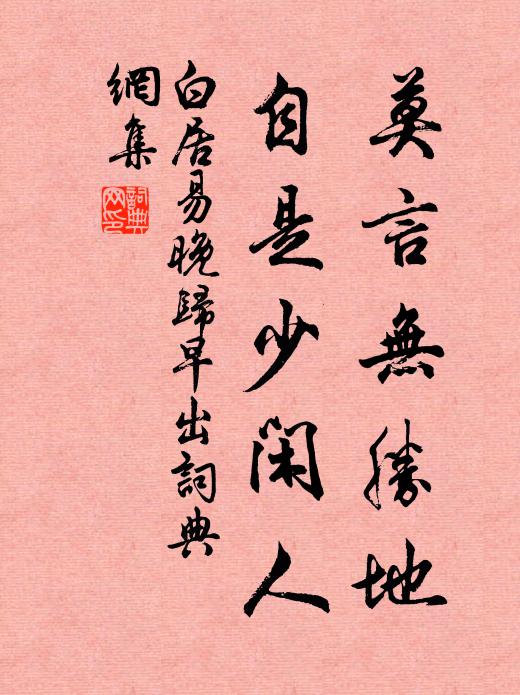 莫言無勝地
自是少閑人
白居易晚歸早出詞典
網集
詞典
网印